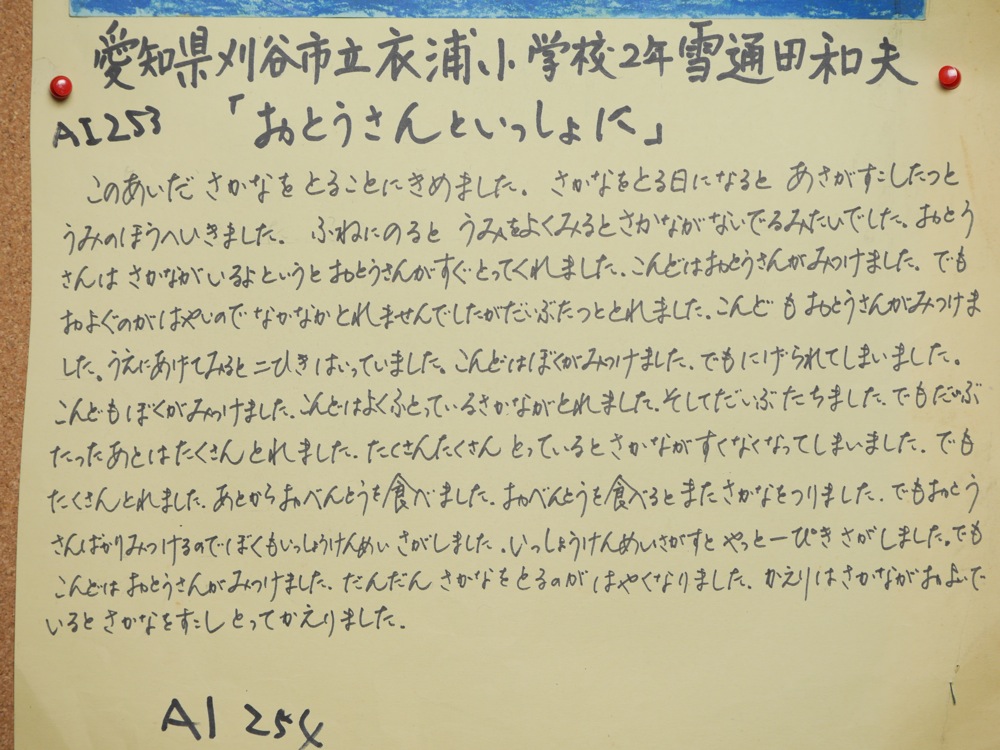 愛知県刈谷市立衣浦小学校2年雪通田和夫
AI253 「おとうさんといっしょに」
このあいだ さかなを とることにきめました。 さかなをとる日になると あさがすこしたつと
うみのほうへいきました。 ふねにのると うみをよくみるとさかながないでるみたいでした。おとう
さんは さかながいるよというと おとうさんがすぐとってくれました。こんどはおとうさんがみつけました。でも
およぐのがはやいので なかなかとれませんでしたがだいぶたつととれました。こんども おとうさんがみつけま
した。うえにあげてみると二ひきはいっていました。こんどはぼくがみつけました。でもにげられてしまいました。
こんどもぼくがみつけました。こんどはよくふとっているさかながとれました。そしてだいぶたちました。でもだいぶ
たったあとはたくさんとれました。たくさんたくさん とっているとさかながすくなくなってしまいました。でも
たくさんとれました。あとからおべんとうを食べました。おべんとうを食べるとまたさかなをつりました。でもおとう
さんばかりみつけるのでぼくもいっしょうけんめいさがしました。いっしょうけんめいさがすとやっと一ぴきさがしました。でも
こんどはおとうさんがみつけました。だんだん さかなをとるのがはやくなりました。かえりはさかながおよいで
いるとさかなをすこしとってかえりました。
AI 254